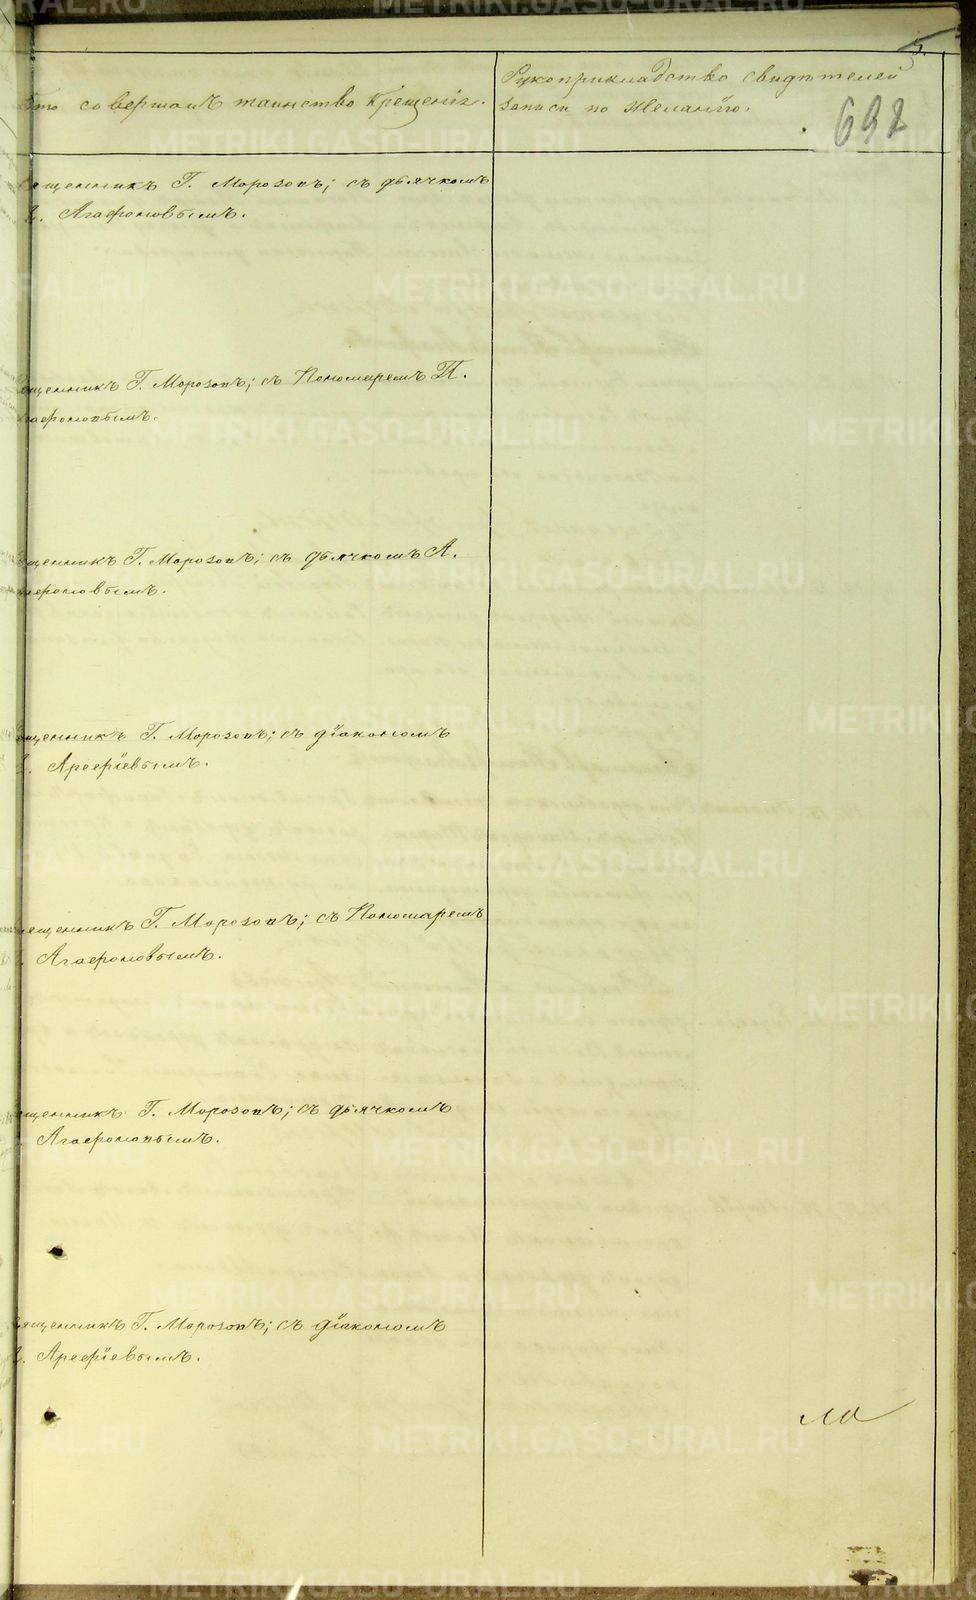 5.
Кто совершалъ таинство Крещенія.
Рукоприкладство свидѣтелей
записи по желанію.
698
ященникъ Г. Морозовъ; съ дьячкомъ
А. Агафоновымъ.
ященникъ Г. Морозовъ; съ Пономаремъ П.
гафоновымъ.
ященникъ Г. Морозовъ; съ дьячкомъ А.
гафоновымъ.
ященникъ Г. Морозовъ; съ діакономъ
Арефіевымъ.
ященникъ Г. Морозовъ; съ Пономаремъ
Агафоновымъ.
ященникъ Г. Морозовъ; съ дьячкомъ
Агафоновымъ.
ященникъ Г. Морозовъ; съ діакономъ
Арефіевымъ.
ла
METRIKI.GASO-URAL.RU